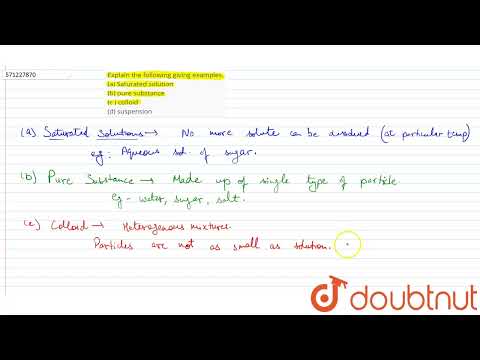 571227870
Explain the following giving examples.
(a) Saturated solution
(b) pure substance
(c) colloid
(d) suspension
(a) Saturated Solutions → No more solute can be dissolved (at particular temp)
eg: Aqueous sol. of sugar.
(b) Pure Substance → Made up of single type of particle.
eg - water, sugar, salt.
(c) Colloid → Heterogenous mixtures.
Particles are not as small as solution.
doubtnut